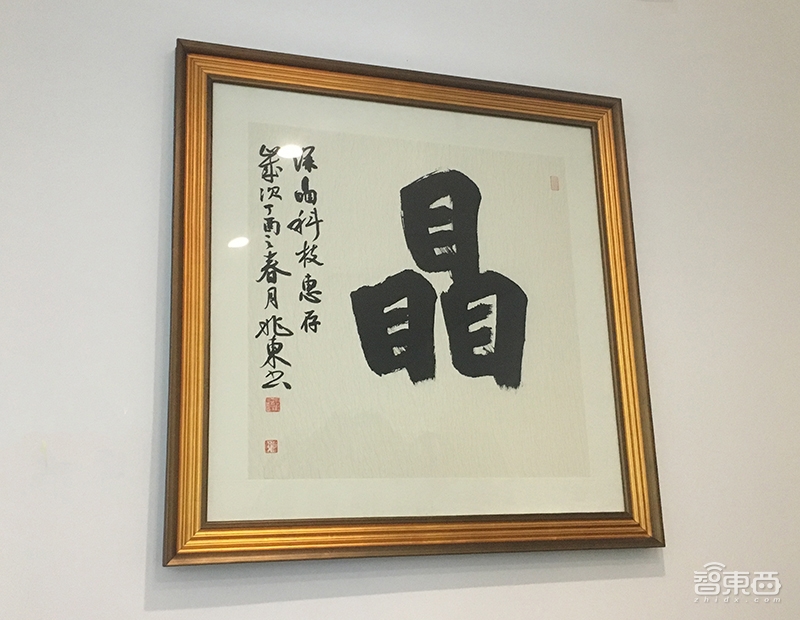 瞐
深瞐科技惠存
歲次丁酉之春月兆東书
智東西
zhidx.com